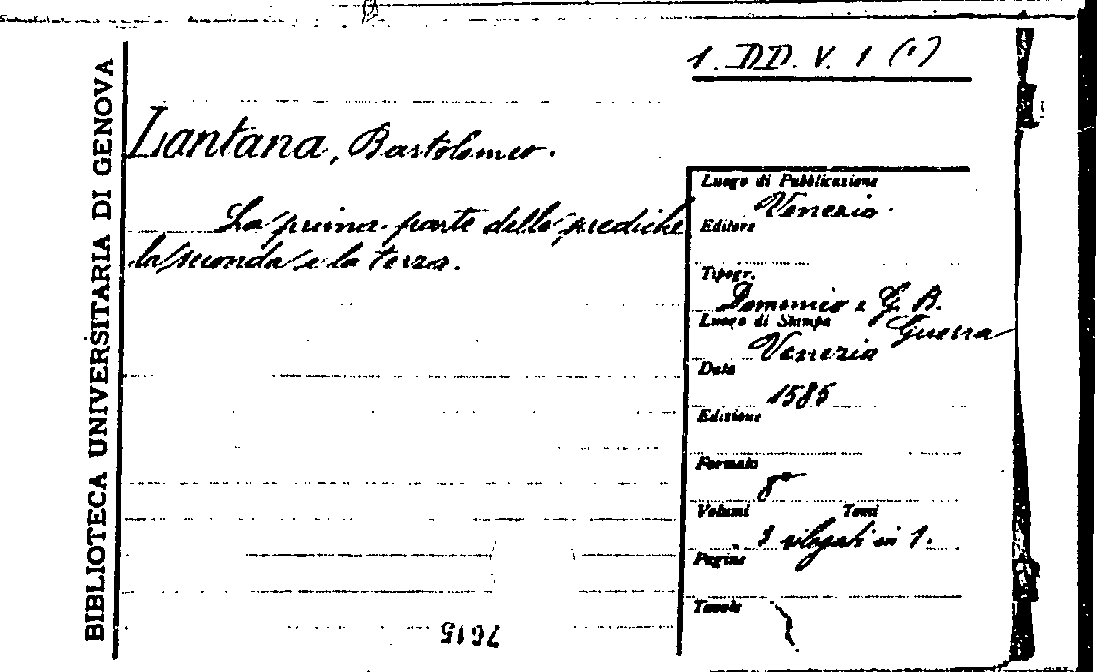 1. DD. V. 1 (1)
BIBLIOTECA UNIVERSITARIA DI GENOVA
Lantana, Bartolomeo.
La prima parte delle prediche
la seconda e la terza.
Luogo di Pubblicazione
Venezia.
Editore
Tipogr.
Domenico e G. B.
Guerra
Luogo di Stampa
Venezia
Data
1585
Edizione
Formato
8°
Volumi Tomi
3 rilegati in 1.
Pagine
Tavole
7615